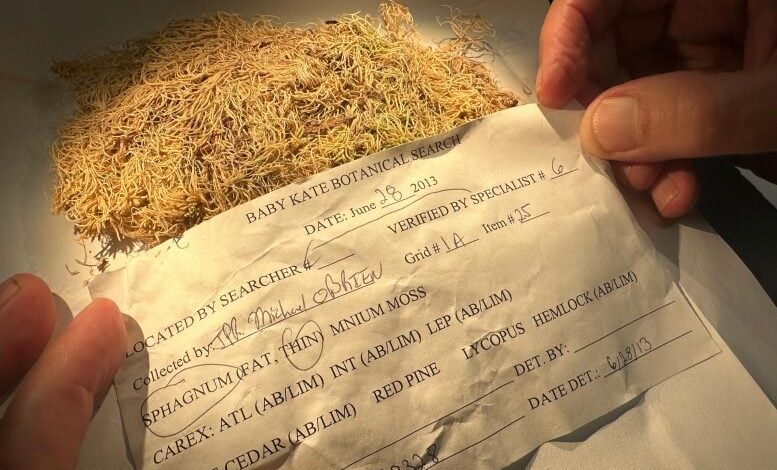 BABY KATE BOTANICAL SEARCH
DATE: June 28 2013
LOCATED BY SEARCHER # VERIFIED BY SPECIALIST # 6
Collected by: TPR. Michael O'BRIEN Grid # 1A Item # 25
SPHAGNUM (FAT, THIN) MNIUM MOSS
CAREX: ATL (AB/LIM) INT (AB/LIM) LEP (AB/LIM)
CEDAR (AB/LIM) RED PINE LYCOPUS HEMLOCK (AB/LIM)
DET. BY:
DATE DET.: 6/28/13